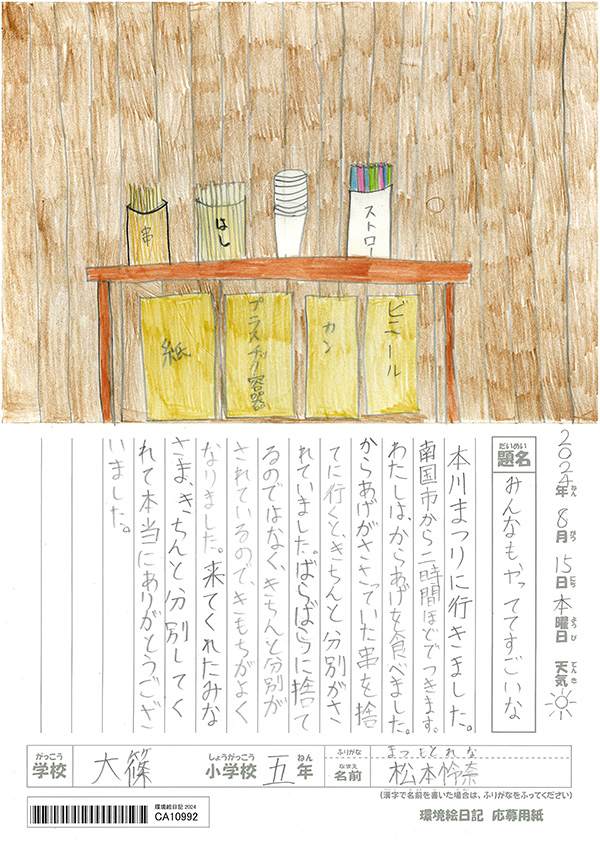 串
はし
ストロー
紙
プラスチック容器
カン
ビニール
2024年 8月 15日 木曜日 天気
ねん がつ にち ようび てんき
だいめい
題名
みんなも、やっててすごいな
本川まつりに行きました。
南国市から二時間ほどでつきます。
わたしは、からあげを食べました。
からあげがささっていた串を捨
てに行くと、きちんと分別がさ
れていました。ばらばらに捨て
るのではなく、きちんと分別が
されているので、きもちがよく
なりました。来てくれたみな
さま、きちんと分別してく
れて本当にありがとうござ
いました。
がっこう
学校
大篠
しょうがっこう
小学校
五
ねん
年
ふりがな
まつもとれな
なまえ
名前
松本怜奈
(漢字で名前を書いた場合は、ふりがなをふってください)
環境絵日記 2024
CA10992
環境絵日記 応募用紙